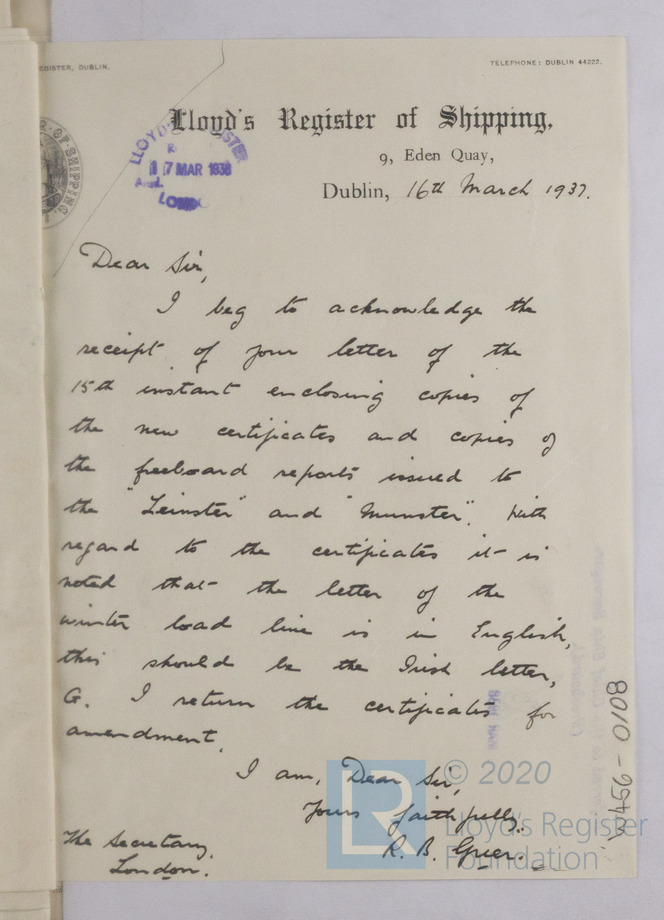 EGISTER, DUBLIN.
TELEPHONE: DUBLIN 44222.
Lloyd's Register of Shipping,
9, Eden Quay,
Dublin, 16th March 1937.
LLOYD'S REGISTER
17 MAR 1938
LONDON
R. OF SHIPPING.
Dear Sir,
I beg to acknowledge the
receipt of your letter of the
15th instant enclosing copies of
the new certificates and copies of
the freeboard reports issued to
the "Leinster" and "Munster". With
regard to the certificates it is
noted that the letter of the
winter load line is in English,
this should be the Irish letter,
G. I return the certificates for
amendment.
I am, Dear Sir,
Yours faithfully,
R. B. Greer.
The Secretary,
London.
W456-0108
LR © 2020
Lloyd's Register
Foundation